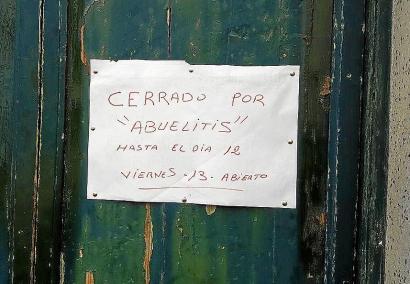 CERRADO POR
"ABUELITIS"
HASTA EL DIA 12
VIERNES-13-ABIERTO